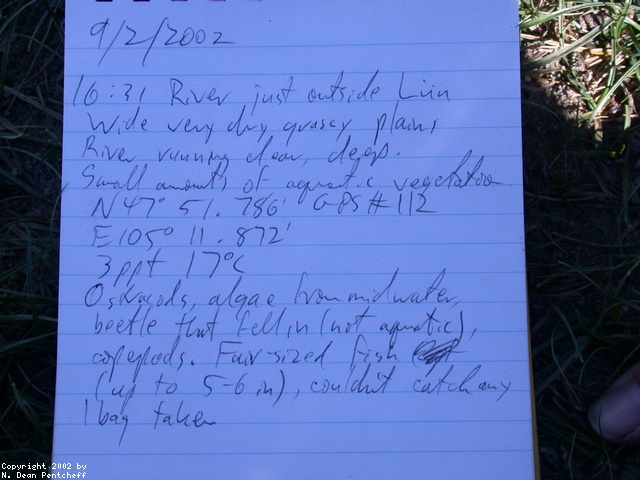 9/2/2002
16:31 River just outside Lün
Wide very dry grassy plains,
River running clear, deep.
Small amounts of aquatic vegetation
N 47° 51.786' GPS #112
E 105° 11.872'
3ppt 17°C
Ostracods, algae from midwater,
beetle that fell in (not aquatic),
copepods. Fair-sized fish
(up to 5-6 in), couldn't catch any
1 bag taken
Copyright 2002 by
N. Dean Pentcheff